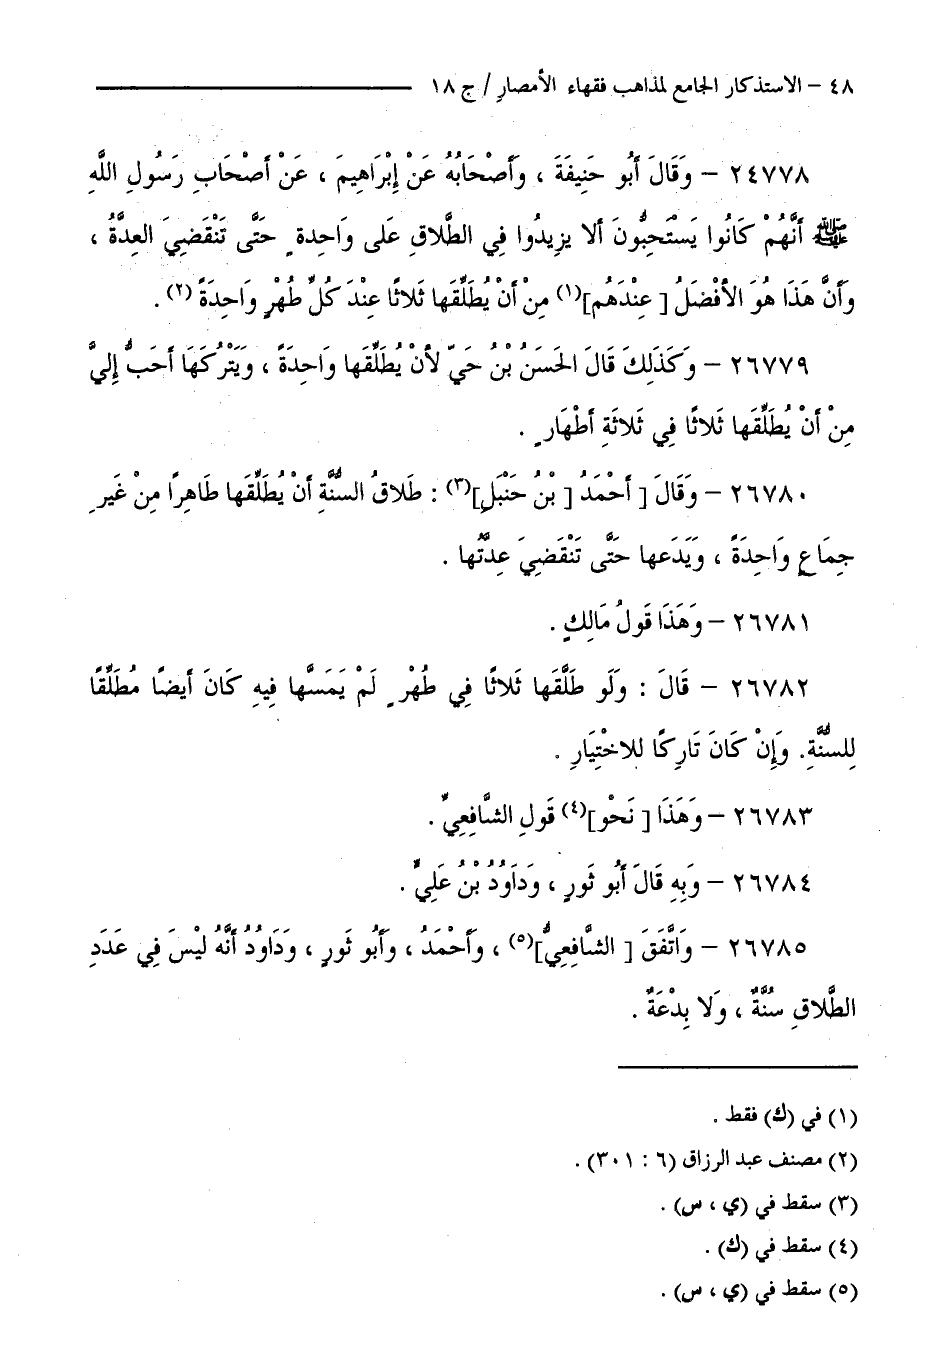 ٤٨ – الاستذكار الجامع لمذاهب فقهاء الأمصار / ج ١٨
٢٤٧٧٨ – وَقَالَ أَبُو حَنِيفَةَ ، وَأَصْحَابُهُ عَنْ إِبْرَاهِيمَ ، عَنْ أَصْحَابِ رَسُولِ اللَّهِ
ﷺ أَنَّهُمْ كَانُوا يَسْتَحِبُّونَ أَلا يزِيدُوا فِي الطَّلاقِ عَلى وَاحِدةٍ حَتَّى تَنْقَضِيَ العِدَّةُ ،
وَأَنَّ هَذَا هُوَ الأَفْضَلُ [ عِنْدَهُم](١) مِنْ أَنْ يُطَلِّقَها ثَلاثًا عِنْدَ كُلِّ طُهْرٍ وَاحِدَةً (٢) .
٢٦٧٧٩ – وَكَذَلِكَ قَالَ الحَسَنُ بْنُ حَيّ لأَنْ يُطَلِّقَها وَاحِدَةً ، وَيَتْرُكَهَا أَحَبُّ إِليَّ
مِنْ أَنْ يُطَلِّقَها ثَلاثًا فِي ثَلاثَةِ أَطْهَارٍ .
٢٦٧٨٠ – وَقَالَ [ أَحْمَدُ [ بْنُ حَنْبَلِ](٣) : طَلاقُ السُّنَّةِ أَنْ يُطَلِّقَها طَاهِرًا مِنْ غَيرِ
جِمَاعٍ وَاحِدَةً ، وَيَدَعها حَتَّى تَنْقَضِيَ عِدَّتُها .
٢٦٧٨١ – وَهَذَا قَولُ مَالِكٍ .
٢٦٧٨٢ – قَالَ : وَلَو طَلَّقَها ثَلاثًا فِي طُهْرٍ لَمْ يَمَسَّها فِيهِ كَانَ أَيضًا مُطَلِّقًا
لِلسُّنَّةِ. وَإِنْ كَانَ تَارِكًا للاخْتِيَارِ .
٢٦٧٨٣ – وَهَذَا [ نَحْو](٤) قَولِ الشَّافِعِيِّ .
٢٦٧٨٤ – وَبِهِ قَالَ أَبُو ثَورٍ ، وَدَاوُدُ بْنُ عَلِيٍّ .
٢٦٧٨٥ – وَاتَّفَقَ [ الشَّافِعِيُّ](٥) ، وَأَحْمَدُ ، وَأَبُو ثَورٍ ، وَدَاوُدُ أَنَّهُ لَيْسَ فِي عَدَدِ
الطَّلاقِ سُنَّةٌ ، وَلا بِدْعَةٌ .
(١) في (ك) فقط .
(٢) مصنف عبد الرزاق (٦ : ٣٠١) .
(٣) سقط في (ي ، س) .
(٤) سقط في (ك) .
(٥) سقط في (ي ، س) .